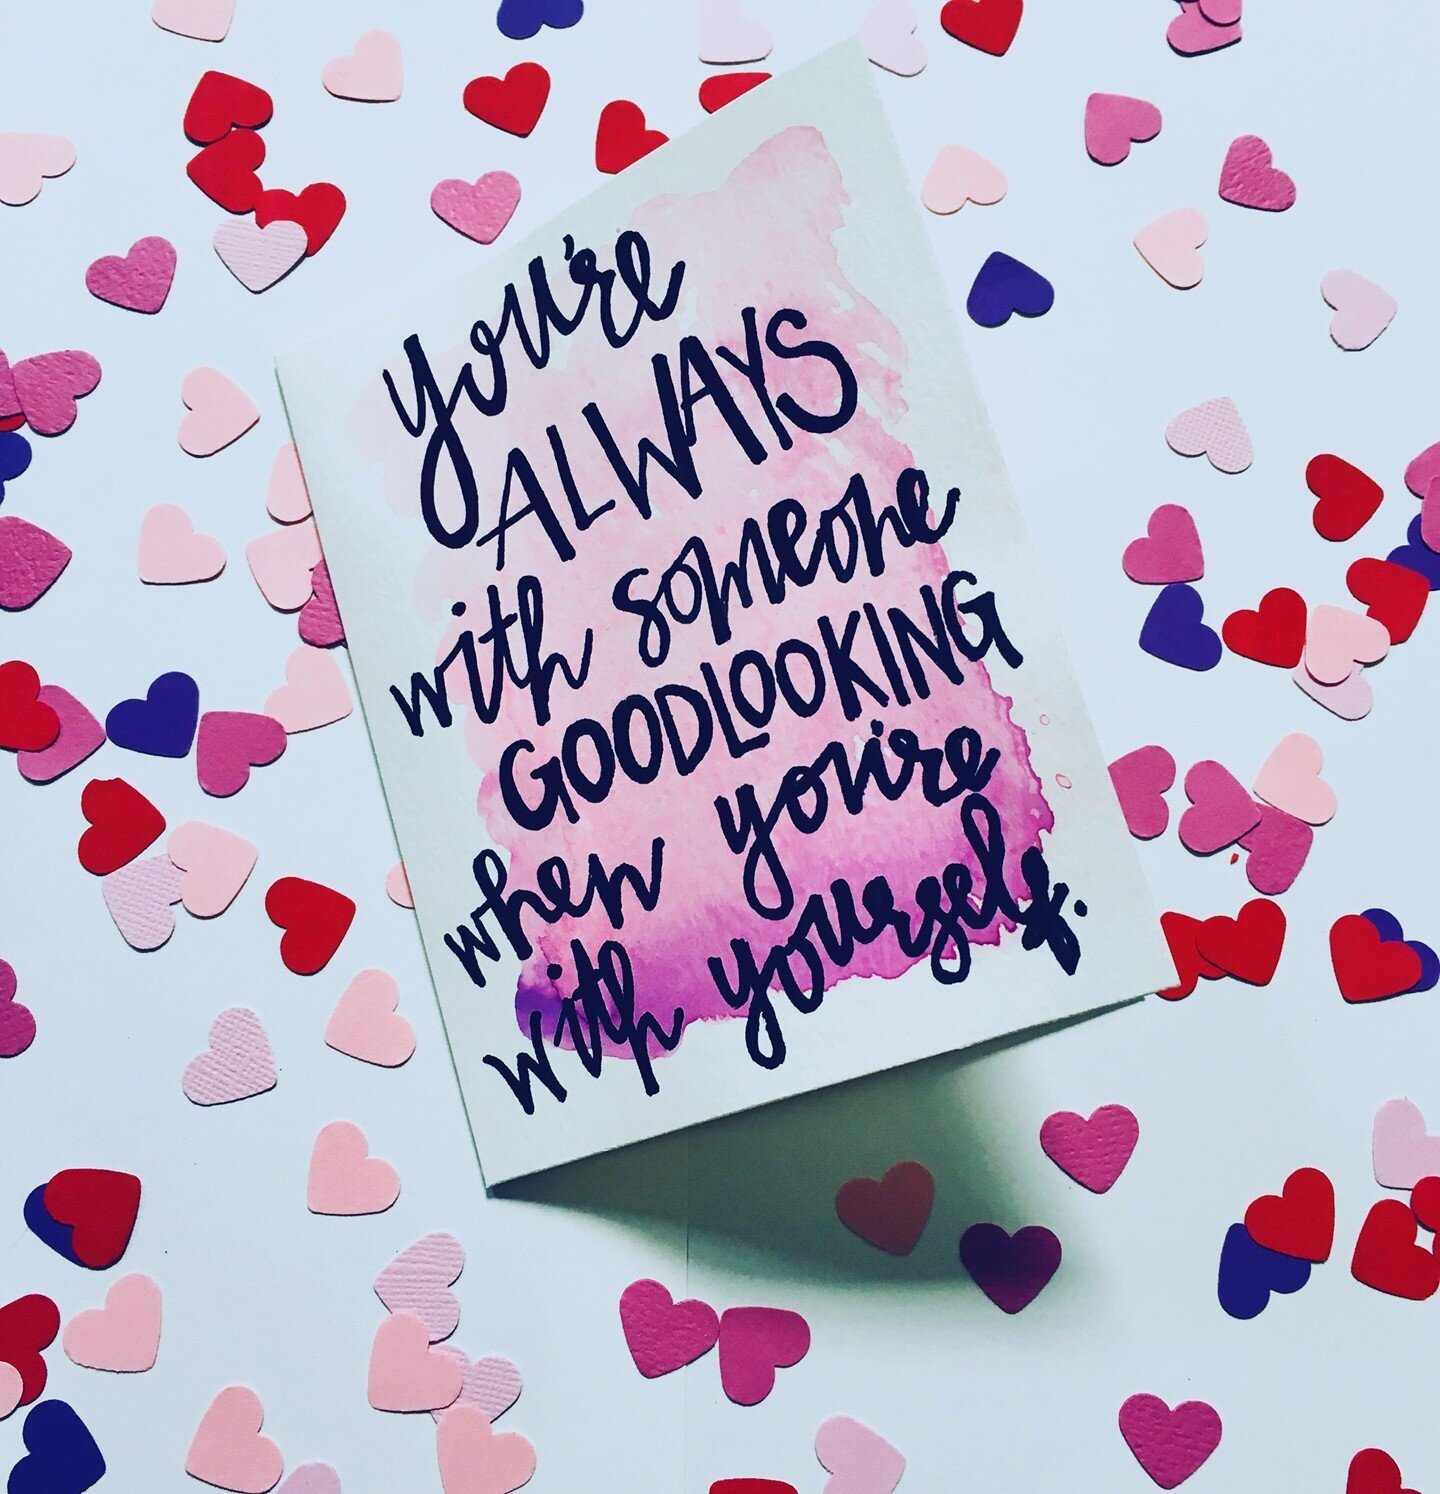 you're
ALWAYS
with someone
GOODLOOKING
when you're
with yourself.